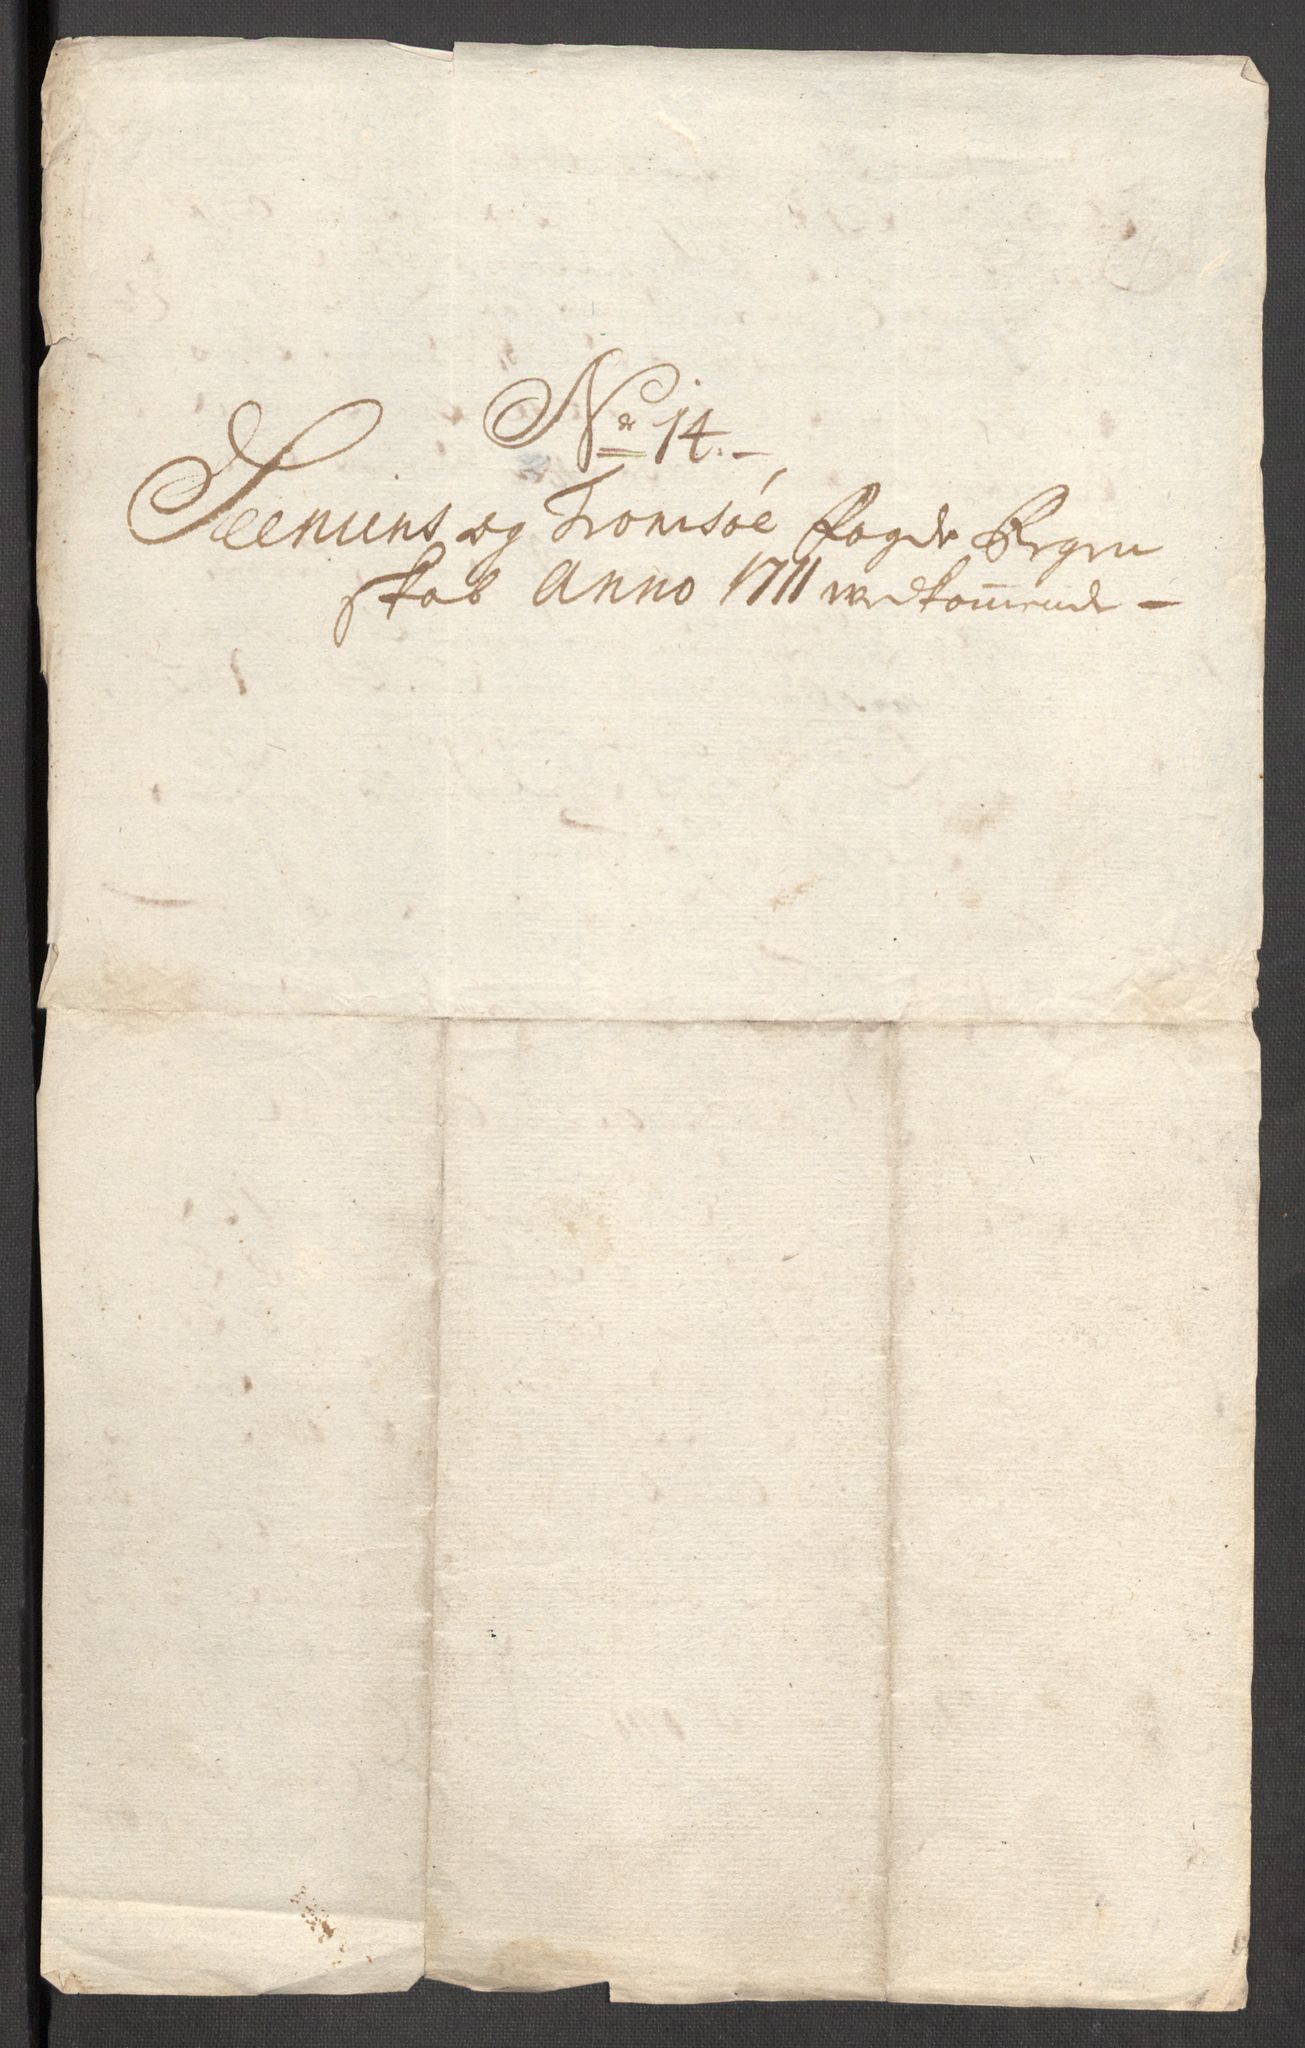 No 14.
Seeniens og Tromsøe fogde Regen
skab Anno 1711 wedkom̄ende